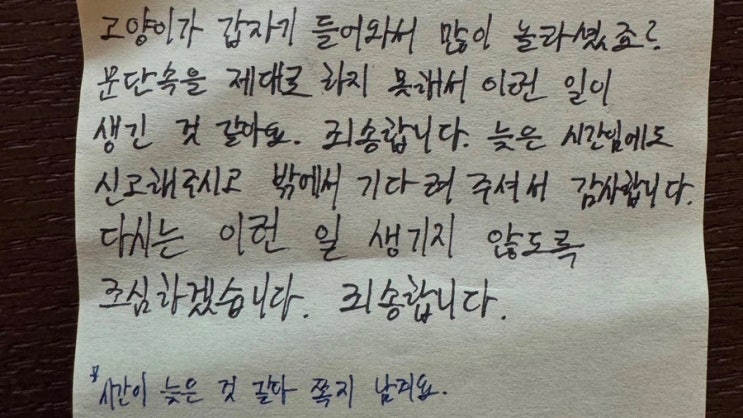 고양이가 갑자기 들어와서 많이 놀라셨죠?
문단속을 제대로 하지 못해서 이런 일이
생긴 것 같아요. 죄송합니다. 늦은 시간임에도
신고해주시고 밖에서 기다려 주셔서 감사합니다.
다시는 이런 일 생기지 않도록
조심하겠습니다. 죄송합니다.
*시간이 늦은 것 같아 쪽지 남겨요.